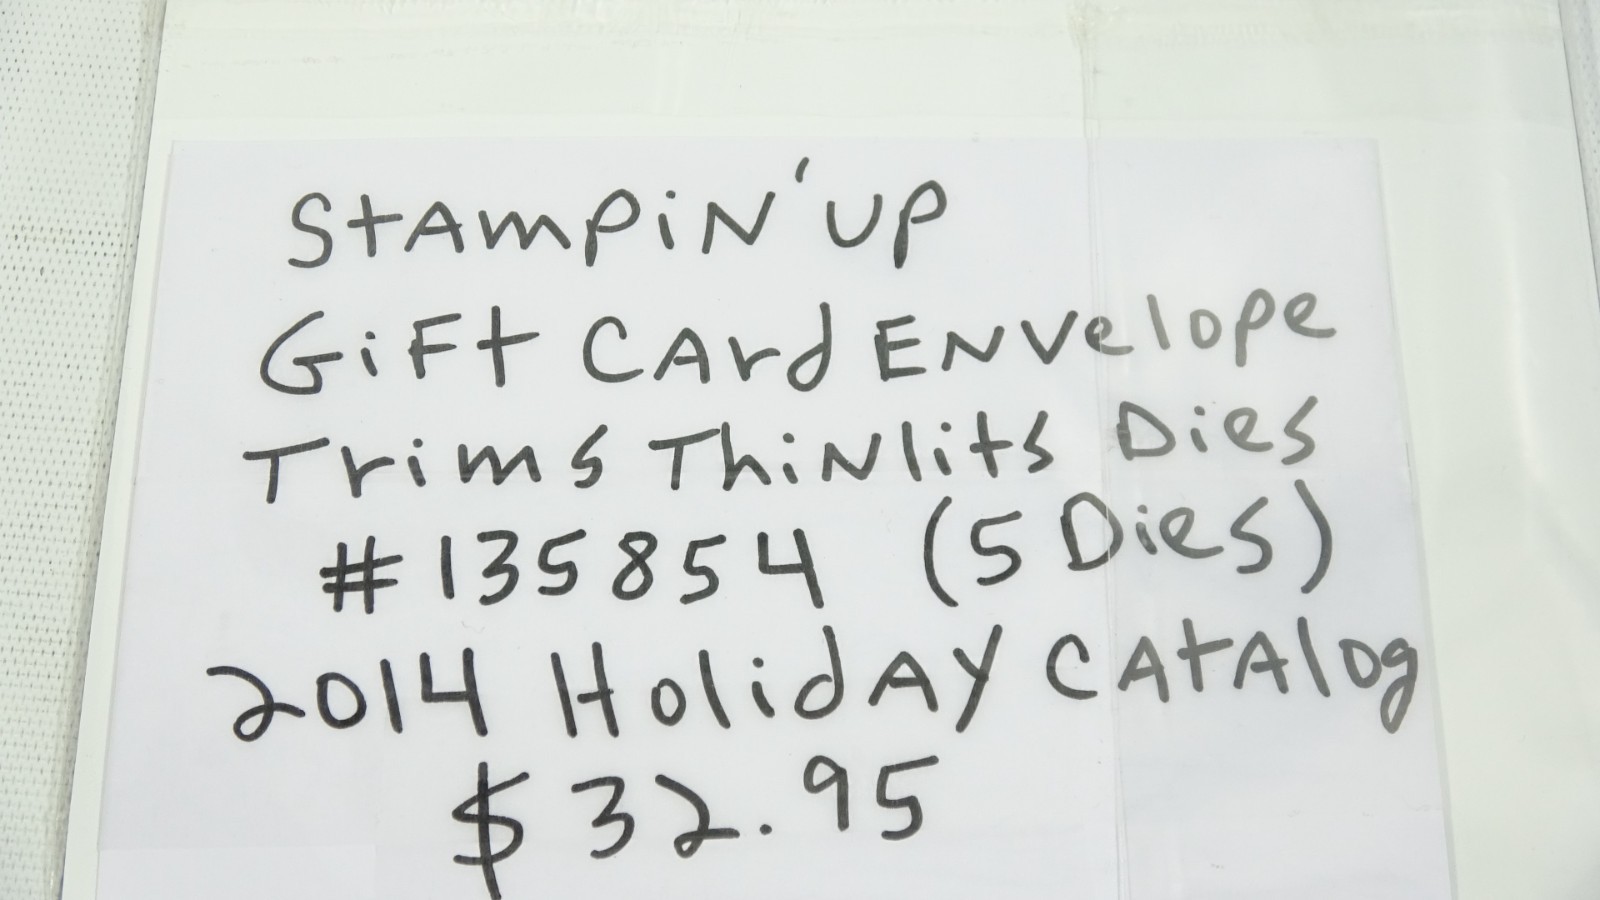 Stampin' Up
Gift Card Envelope
Trims Thinlits Dies
#135854 (5 Dies)
2014 Holiday Catalog
$32.95